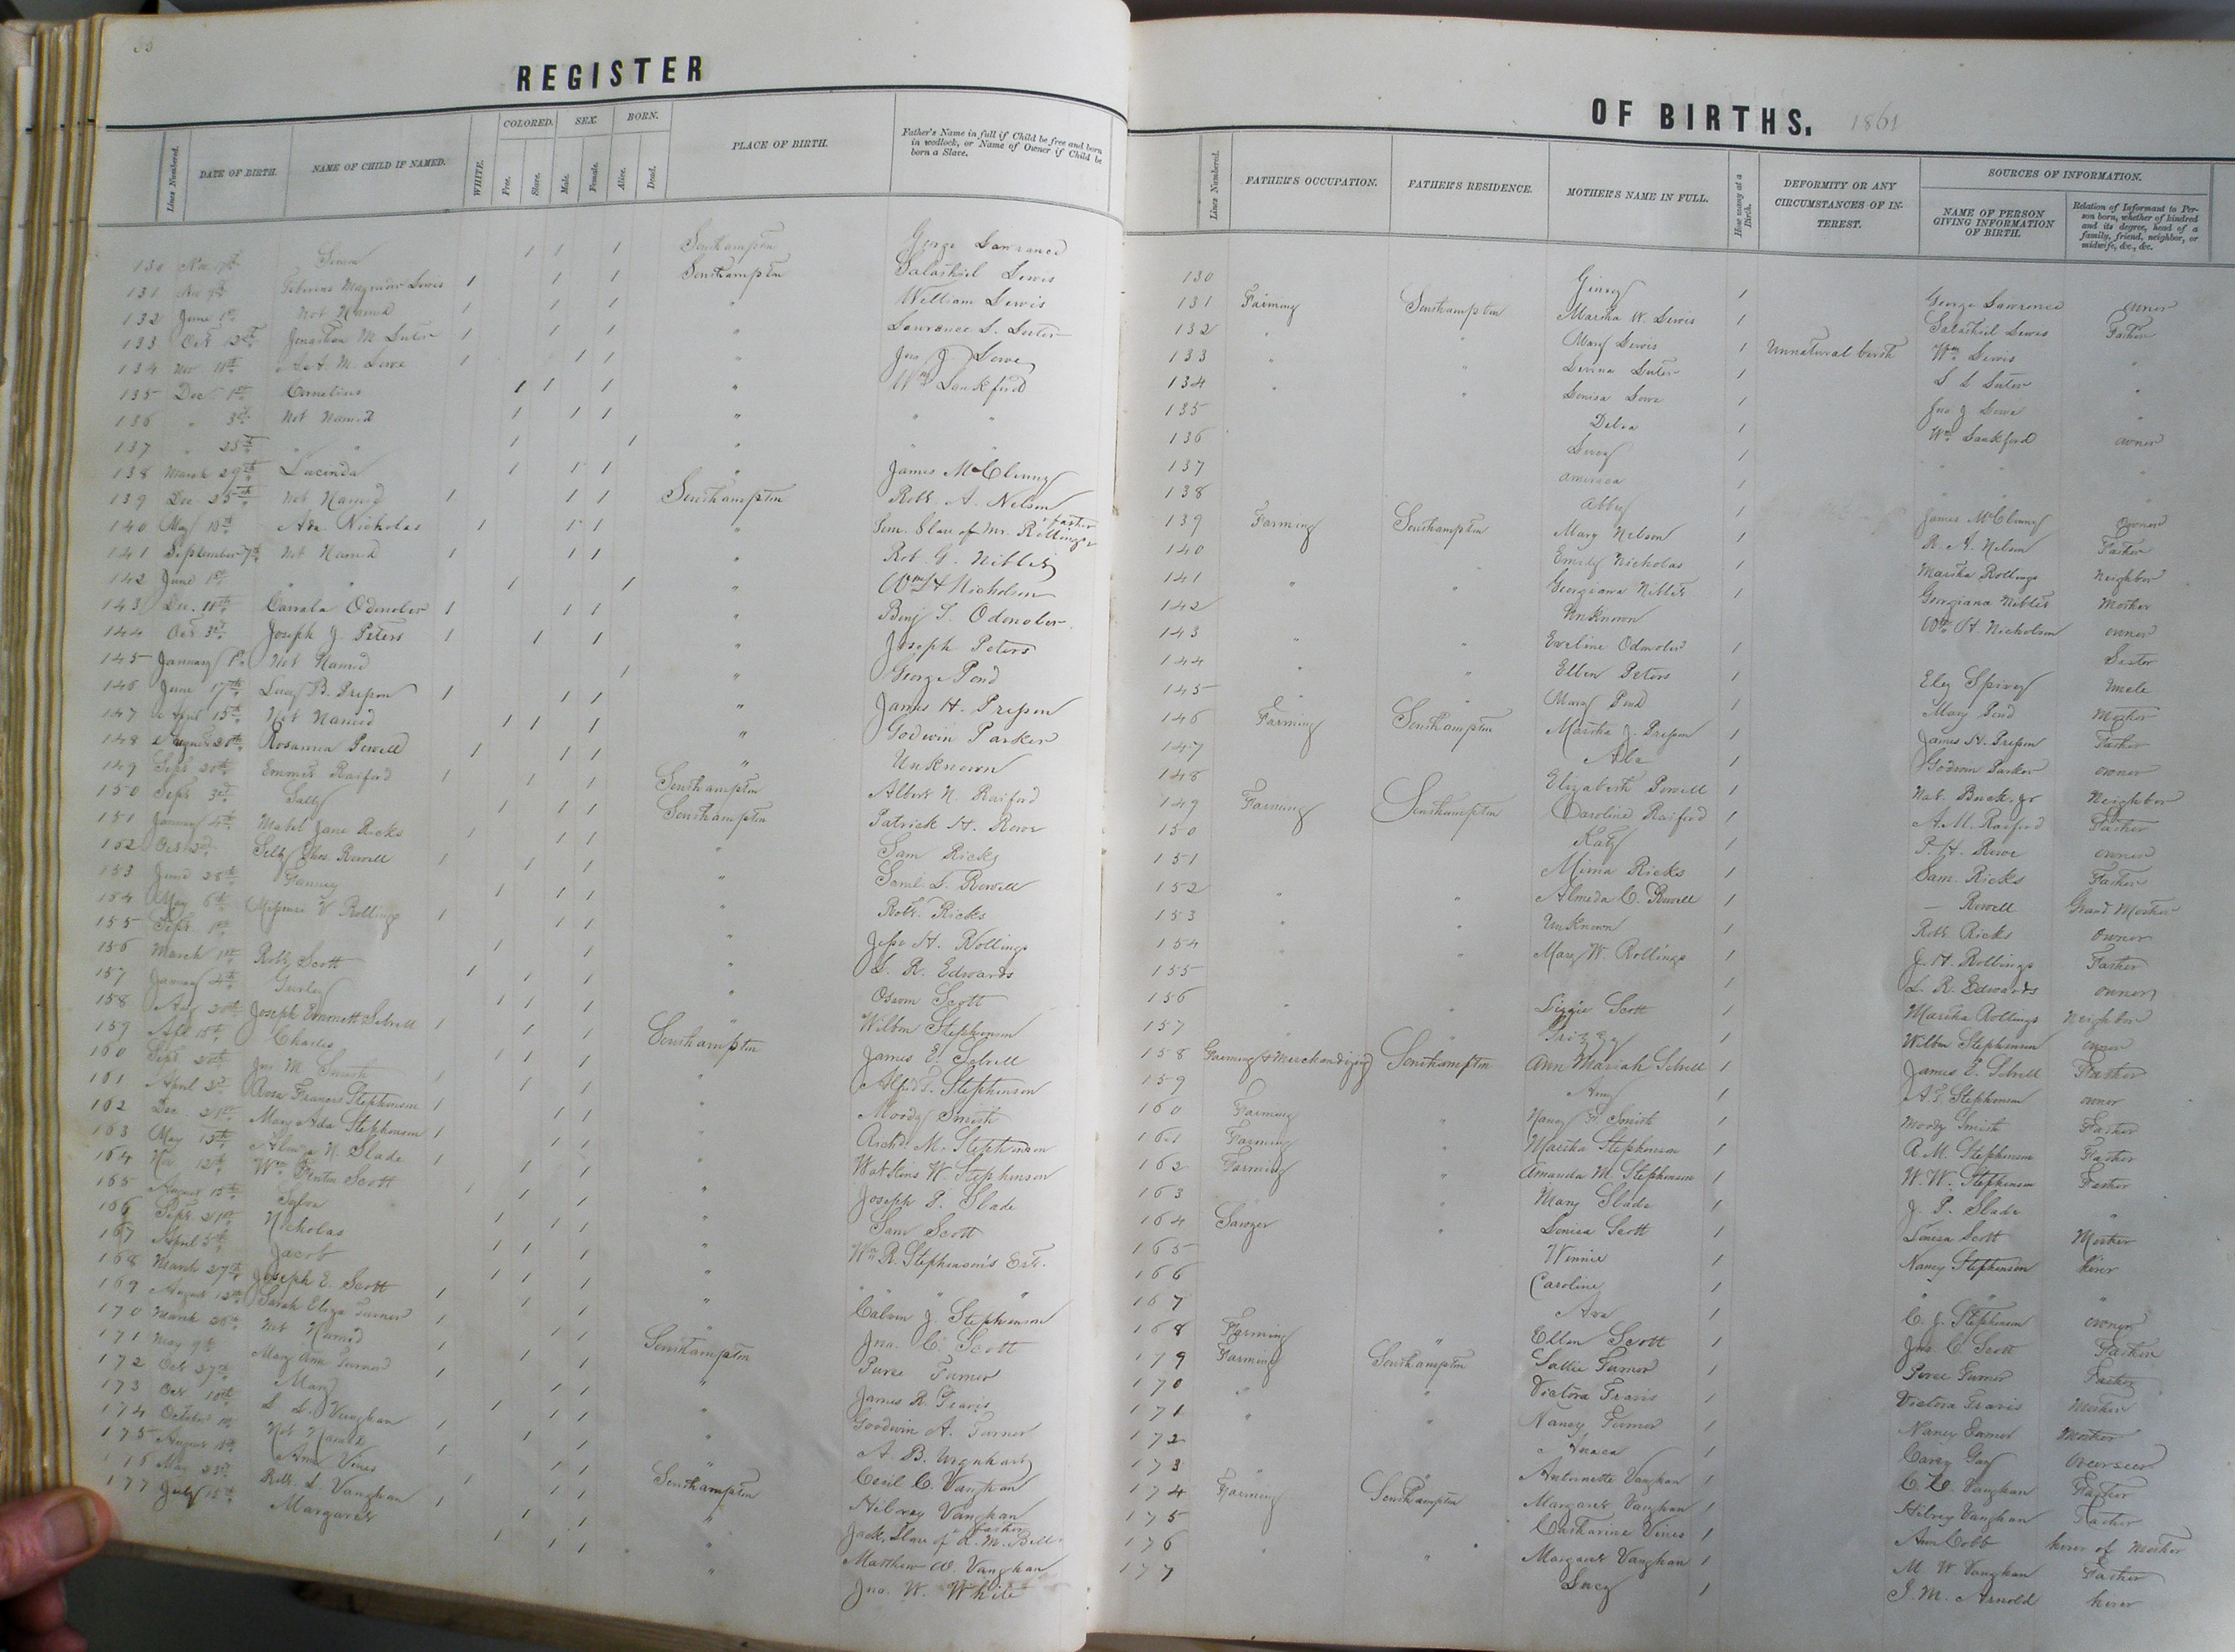 REGISTER
Lines Numbered. DATE OF BIRTH. NAME OF CHILD IF NAMED. WHITE. COLORED. Free. Slave. SEX. Male. Female. BORN. Alive. Dead. PLACE OF BIRTH. Father's Name in full if Child be free and born in wedlock, or Name of Owner if Child be born a Slave.
130 Southampton George Lawrence
131 Lewis 1 Southampton Salathiel Lewis
132 June 1st Not Named 1 " William Lewis
133 Oct 12th Jonathan M Suter 1 " Lawrence S. Suter
134 Nov. 11th M. Lowe 1 " Jno J. Lowe
135 Dec 1st Cornelius " Wm Lankford
136 " 3rd Not Named " " "
137 " 25th " " " " "
138 March 29th Lucinda " James McClenny
139 Dec 25th Not Named 1 Southampton Robt. A. Nelson
140 May 18th Ada Nicholas 1 " Sem. Slave of Mr. Rollings father
141 September 7th Not Named 1 " Rob G. Niblet
142 June 1st " " " Wm H Nicholson
143 Dec. 11th Odomder 1 " Benj T. Odomder
144 Oct 3rd Joseph J. Peters 1 " Joseph Peters
145 January 1st Not Named " George Pond
146 June 17th Lucy B. Presson 1 " James H. Presson
147 April 15th Not Named " Godwin Parker
148 August 20th Rosanna Powell 1 " Unknown
149 Sept 20th Emmet Raiford 1 Southampton Albert N. Raiford
150 Sept 3rd Sally Southampton Patrick H. Rowe
151 January 4th Mabel Jane Ricks " Sam Ricks
152 Oct 2nd Rowell 1 " Saml. T. Rowell
153 June 28th Fanney " Robt. Ricks
154 May 6th V Rollings 1 " Jesse H. Rollings
155 Sept. 1st " L. R. Edwards
156 March 1st Robt. Scott " Scott
157 January 4th " Wilbur Stephenson
158 Aug 20th Joseph Emmett Sebrell 1 Southampton James E. Sebrell
159 Apl 15th Charles " Alfd. T. Stephenson
160 Sept 20th Jno M. Smith 1 " Moody Smith
161 April 2d Frances Stephenson 1 " Archd M. Stephenson
162 Dec. 21st Mary Ada Stephenson 1 " Watkins W. Stephenson
163 May 13th N. Slade 1 " Joseph P. Slade
164 Nov 12th Wm Fenton Scott " Sam Scott
165 August 15th Sylva " Wm R. Stephenson's Est.
166 Sept. 21st Nicholas " " "
167 April 5th Jacob " Calvin J. Stephenson
168 March 27th Joseph E. Scott 1 Southampton Jno. C. Scott
169 August 12th Sarah Eliza Turner 1 " Turner
170 March 26th Not Named 1 " James R. Travis
171 May 9th Mary Ann Turner 1 " Goodwin A. Turner
172 Oct 27th Mary " A. B. Urquhart
173 Oct 10th S. L. Vaughan 1 Southampton Cecil C. Vaughan
174 October Not Named 1 " Vaughan
175 August 18th Ann Vines " Jack, Slave of R. M. Bell father
176 May 23rd Robt. L. Vaughan 1 " Matthew W. Vaughan
177 July 15th Margaret " Jno. W. White
OF BIRTHS. 1861
Lines Numbered. FATHER'S OCCUPATION. FATHER'S RESIDENCE. MOTHER'S NAME IN FULL. How many at a Birth. DEFORMITY OR ANY CIRCUMSTANCES OF INTEREST. SOURCES OF INFORMATION. NAME OF PERSON GIVING INFORMATION OF BIRTH. Relation of Informant to Person born, whether of kindred and its degree, head of a family, friend, neighbor, or midwife, &c., &c.
130 Ginny 1 George Lawrence owner
131 Farming Southampton Martha W. Lewis 1 Salathiel Lewis Father
132 " " Mary Lewis 1 Unnatural birth Wm Lewis "
133 " " Suter 1 L S Suter "
134 " " Louisa Lowe 1 Jno J Lowe "
135 Delia 1 Wm Lankford owner
136 Lucy 1 " "
137 America 1 " "
138 Abby 1 James McClenny owner
139 Farming Southampton Mary Nelson 1 R. A. Nelson Father
140 Emily Nicholas 1 Martha Rollings Neighbor
141 " " Georgiana Niblet 1 Georgiana Niblet Mother
142 Unknown Wm H. Nicholson owner
143 " " Eveline Odomder 1 Sister
144 " " Ellen Peters 1 Eley Spivey Uncle
145 " Mary Pond 1 Mary Pond Mother
146 Farming Southampton Martha J. Presson 1 James H. Presson Father
147 1 Godwin Parker owner
148 Elizabeth Powell 1 Nat. Buck. Jr Neighbor
149 Farming Southampton Caroline Raiford 1 A. N. Raiford Father
150 Katy 1 P. H. Rowe owner
151 Ricks 1 Sam. Ricks Father
152 " " Almeda C. Rowell 1 — Rowell Grand Mother
153 " " Unknown 1 Robt Ricks owner
154 " " Mary W. Rollings 1 J. H. Rollings Father
155 1 L. R. Edwards owner
156 " " Lizzie Scott 1 Martha Rollings Neighbor
157 1 Wilbur Stephenson owner
158 Farming & Merchandizing Southampton Ann Mariah Sebrell 1 James E. Sebrell Father
159 Amy 1 A. T. Stephenson owner
160 Farming " Nancy F. Smith 1 Moody Smith Father
161 Farming " Martha Stephenson 1 A. M. Stephenson Father
162 Farming " Amanda M. Stephenson 1 W. W. Stephenson Father
163 " Mary Slade 1 J. P. Slade "
164 Sawyer " Louisa Scott 1 Louisa Scott Mother
165 Winnie 1 Nancy Stephenson hirer
166 Caroline 1 " "
167 1 C. J. Stephenson owner
168 Farming " Ellen Scott 1 Jno. C. Scott Father
179 Farming Southampton Sallie Turner 1 Turner Father
170 " " Victora Travis 1 Victora Travis Mother
171 " " Nancy Turner 1 Nancy Turner Mother
172 1 Carey Gay Overseer
173 " Antonette Vaughan 1 C. C. Vaughan Father
174 Farming Southampton Margaret Vaughan 1 Vaughan Father
175 Catharine Vines 1 Ann Cobb hirer of Mother
176 " " Margaret Vaughan 1 M W Vaughan Father
177 Lucy 1 J. M. Arnold hirer